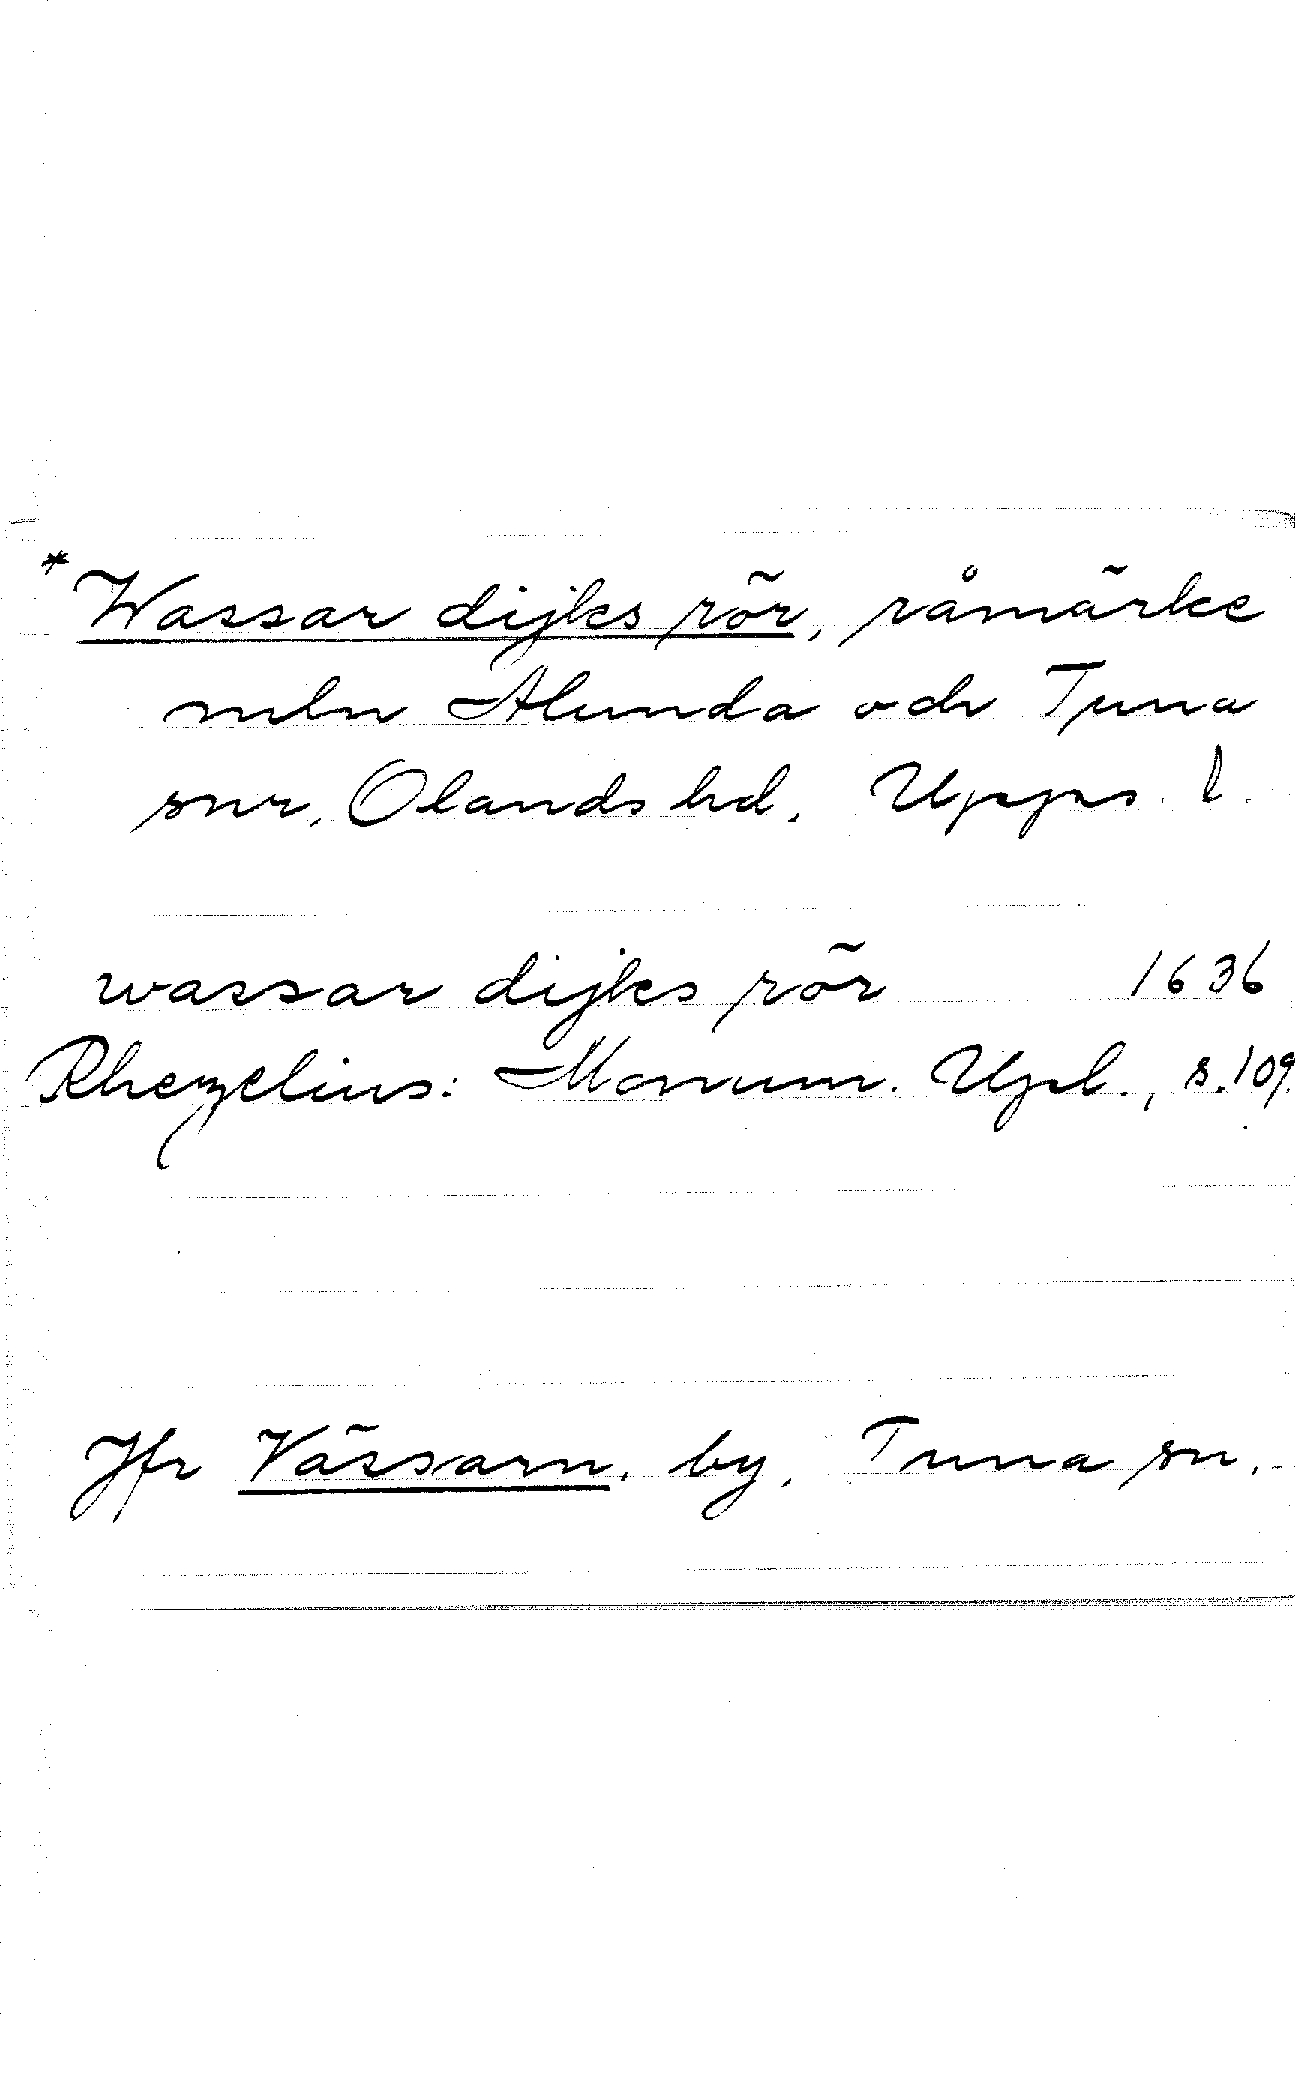 * Wassar dijks rör, råmärke
mln Alunda och Tuna
snr, Olands hd, Upps. l.
wassar dijks rör 1636
Rhezelius: Monum. Upl., s. 109.
Jfr Vässarn, by, Tuna sn.